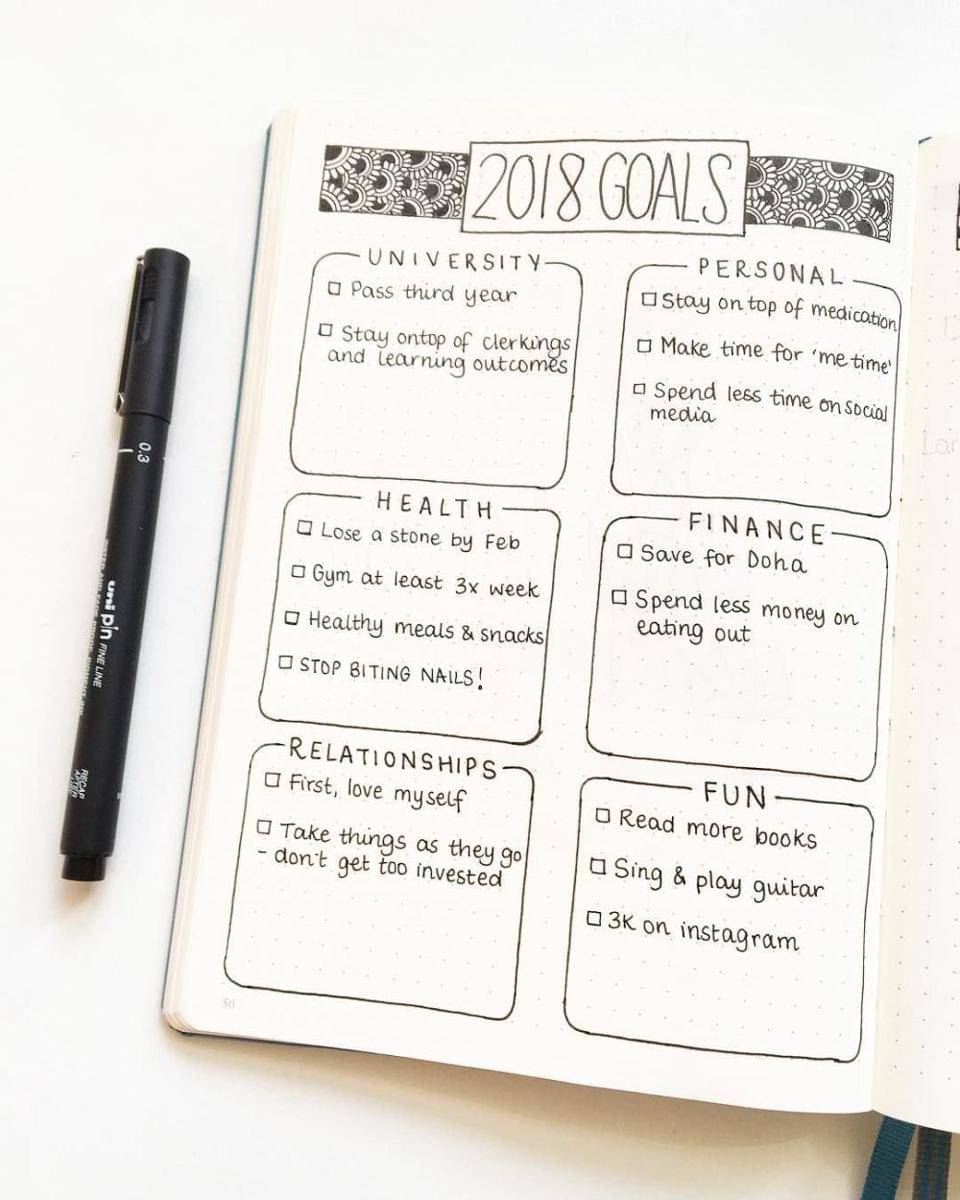 2018 GOALS
UNIVERSITY
☐ Pass third year
☐ Stay ontop of clerkings
and learning outcomes
PERSONAL
☐ Stay on top of medication
☐ Make time for 'me time'
☐ Spend less time on social
media
HEALTH
☐ Lose a stone by Feb
☐ Gym at least 3x week
☐ Healthy meals & snacks
☐ STOP BITING NAILS!
FINANCE
☐ Save for Doha
☐ Spend less money on
eating out
RELATIONSHIPS
☐ First, love myself
☐ Take things as they go
- don't get too invested
FUN
☐ Read more books
☐ Sing & play guitar
☐ 3K on instagram
50
0.3
uni pin FINE LINE
RECAP
AFTER